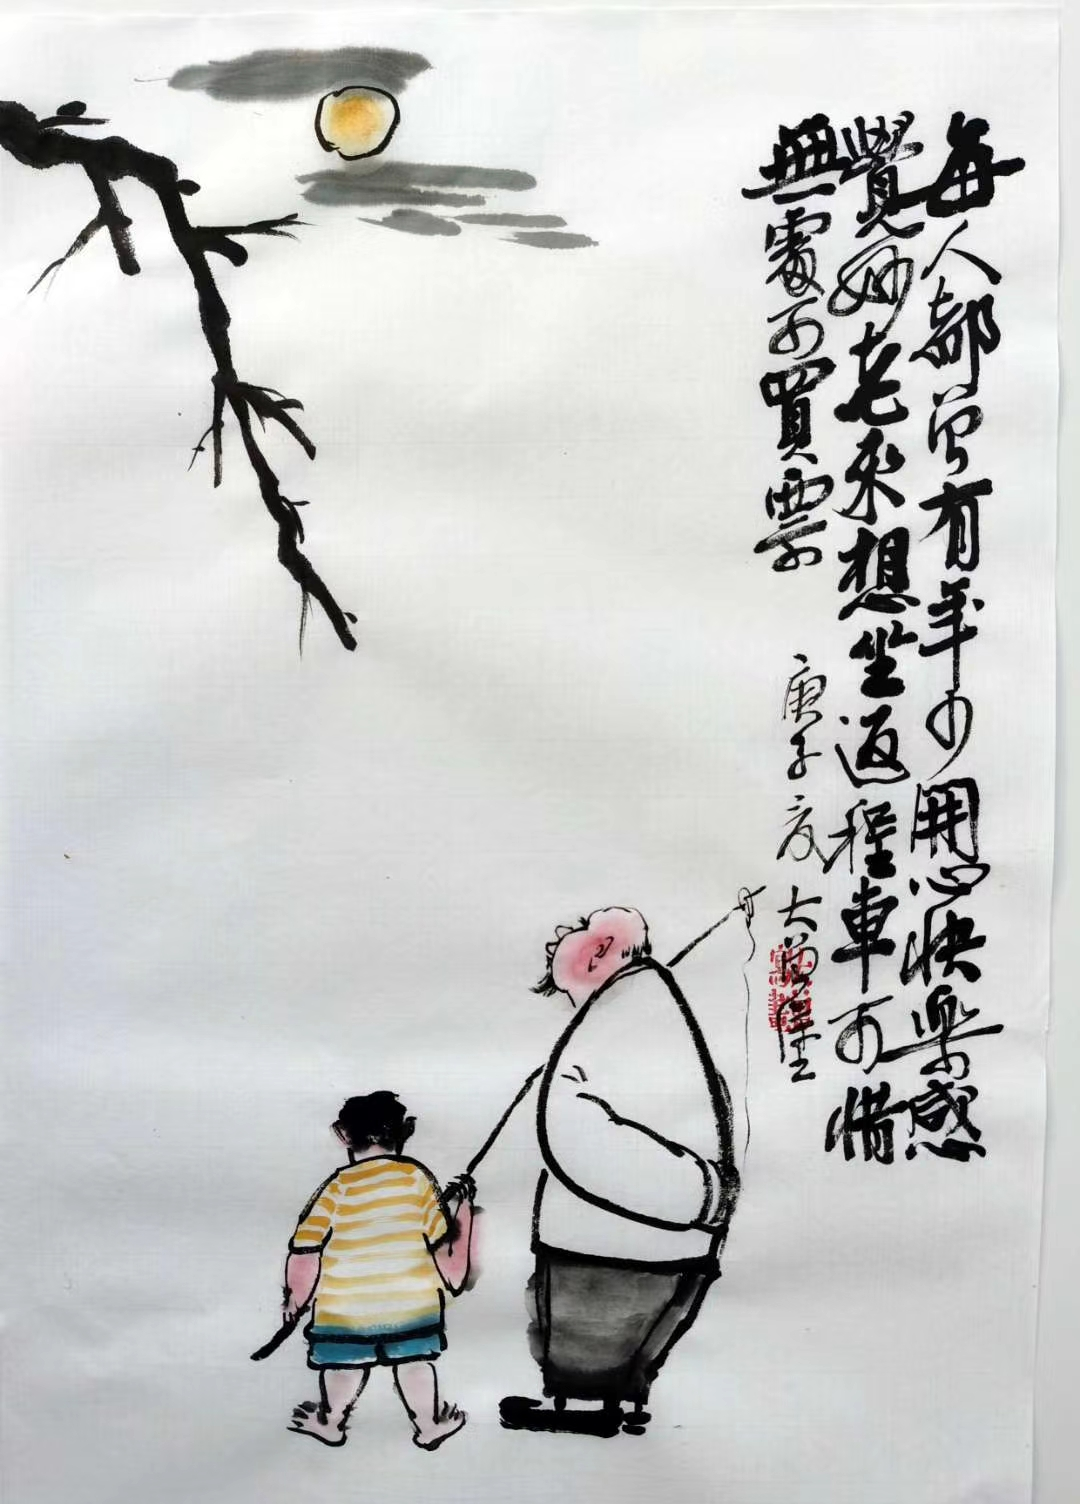 每人都曾有年少開心快樂感
覺妙老來想坐返程車可惜
無處可買票
庚子夏 大